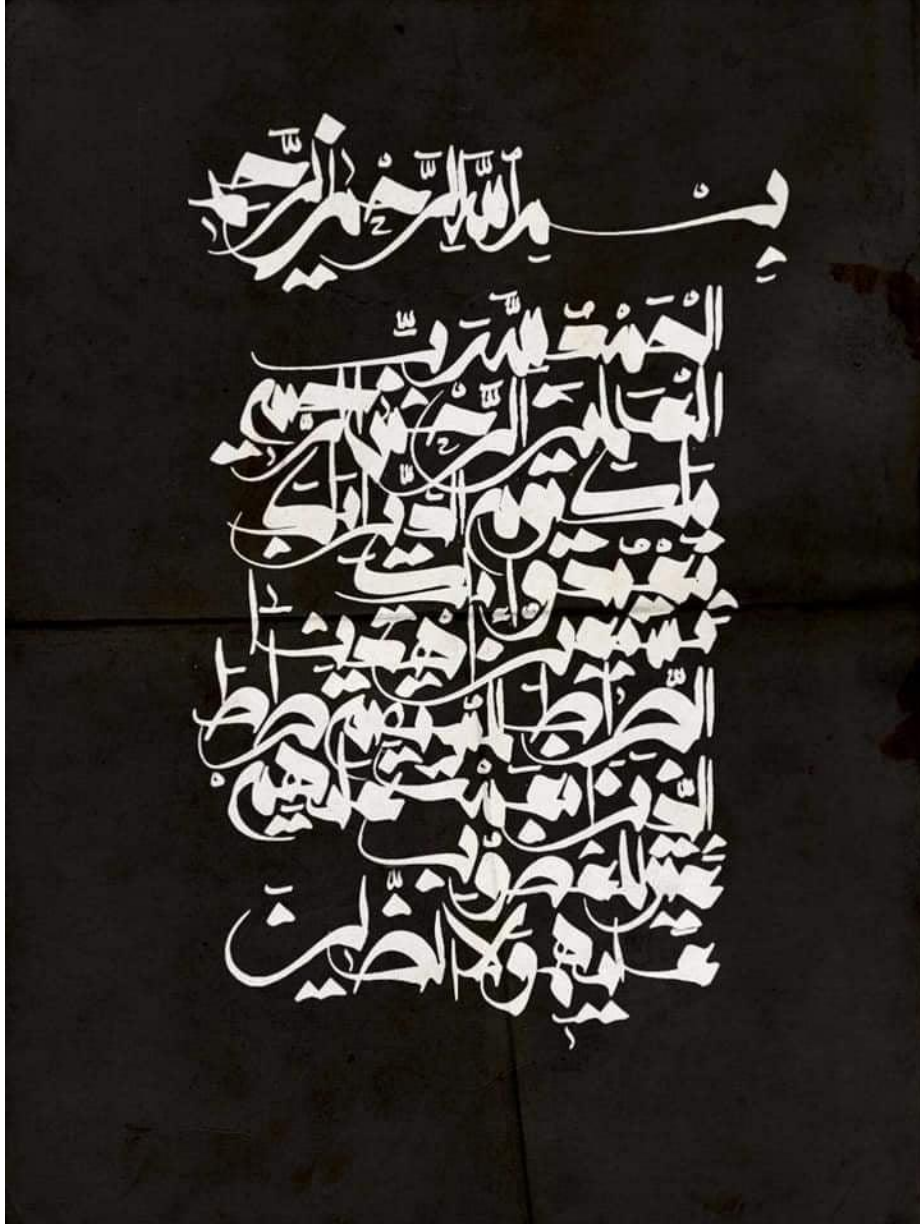 بِسْمِ ٱللَّهِ ٱلرَّحْمَٰنِ ٱلرَّحِيمِ
الْحَمْدُ لِلَّهِ رَبِّ
الْعَٰلَمِينَ الرَّحْمَٰنِ الرَّحِيمِ
مَٰلِكِ يَوْمِ الدِّينِ إِيَّاكَ
نَعْبُدُ وَإِيَّاكَ
نَسْتَعِينُ اهْدِنَا
الصِّرَاطَ الْمُسْتَقِيمَ صِرَاطَ
الَّذِينَ أَنْعَمْتَ عَلَيْهِمْ
غَيْرِ الْمَغْضُوبِ
عَلَيْهِمْ وَلَا الضَّالِّينَ